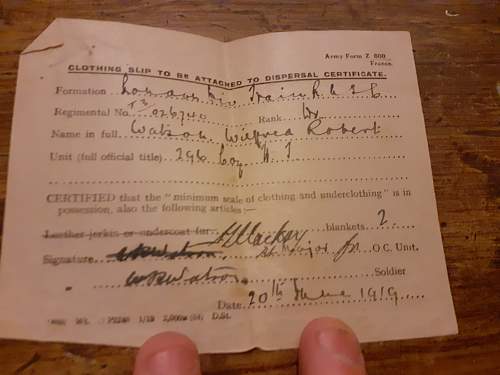 Army Form Z 800
France.
CLOTHING SLIP TO BE ATTACHED TO DISPERSAL CERTIFICATE.
Formation London Div Train R A S C
Regimental No. T3/026740 Rank Dr
Name in full Watson Wilfred Robert
Unit (full official title) 296 Coy H T
CERTIFIED that the "minimum scale of clothing and underclothing" is in
possession, also the following articles:—
Leather jerkin or undercoat fur blankets 2
Signature Major for O.C. Unit.
WRWatson Soldier
Date 20th June 1919